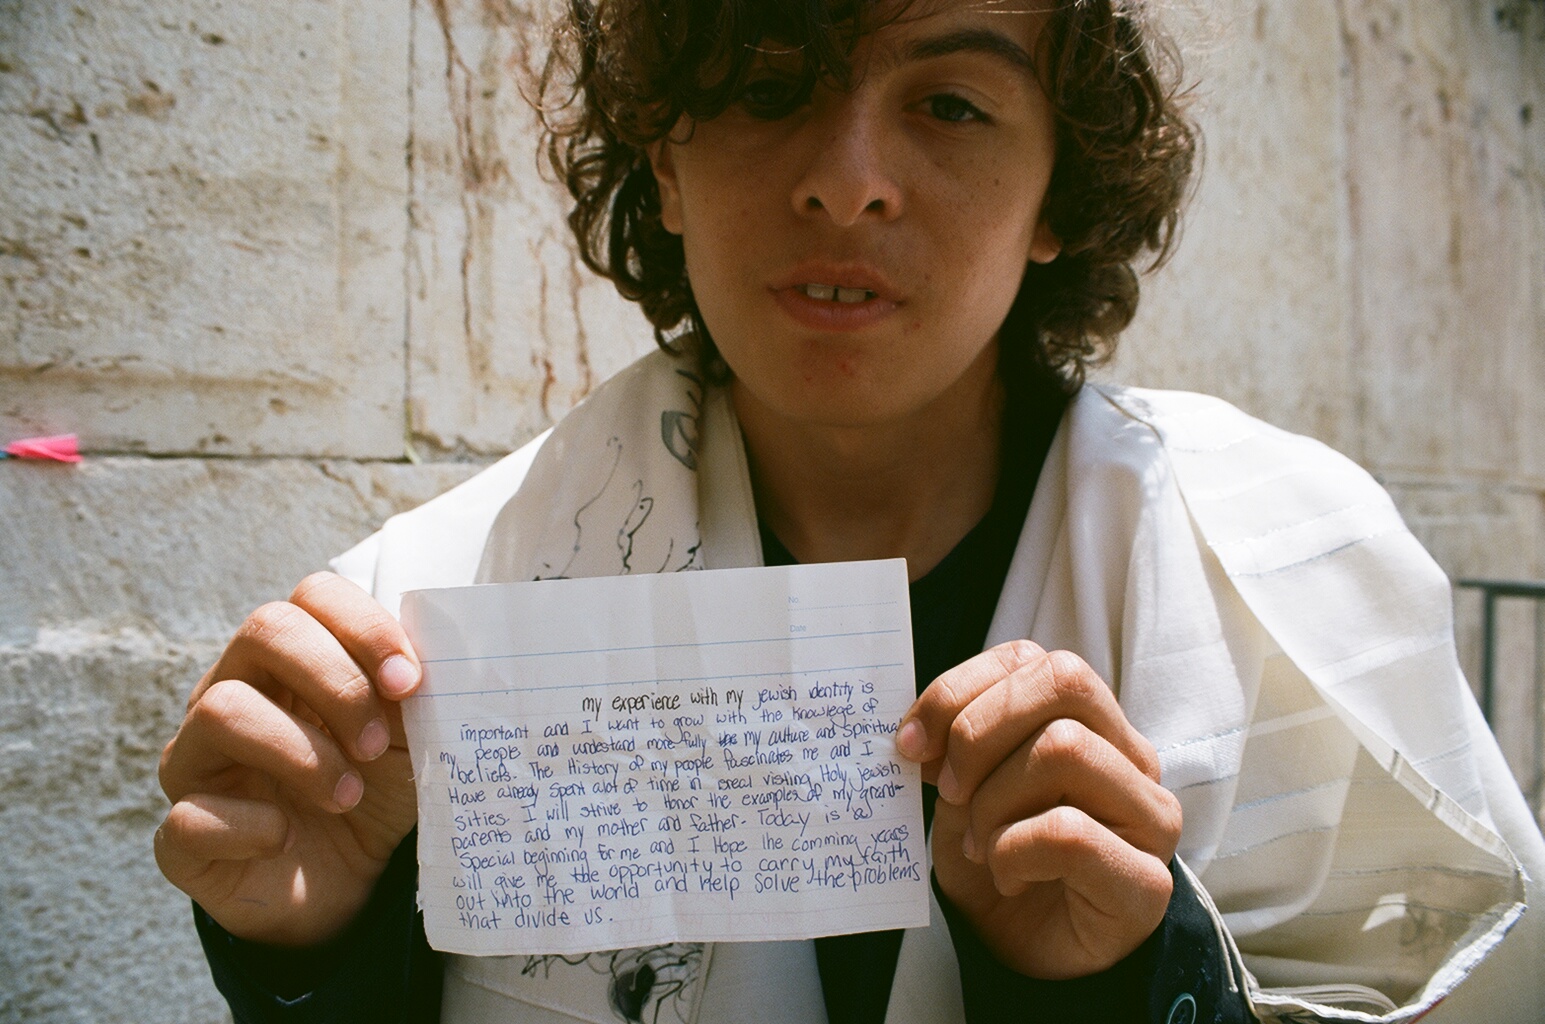 No.
Date
my experience with my jewish identity is
important and I want to grow with the knowlege of
my people and undestand more fully the my culture and spiritual
beliefs. The History of my people fascinates me and I
Have already spent alot of time in isreal visiting Holy jewish
sities. I will strive to Honor the examples of my grand-
parents and my mother and father. Today is a
special beginning for me and I Hope the comming years
will give me the opportunity to carry my faith
out into the world and Help solve the problems
that divide us.